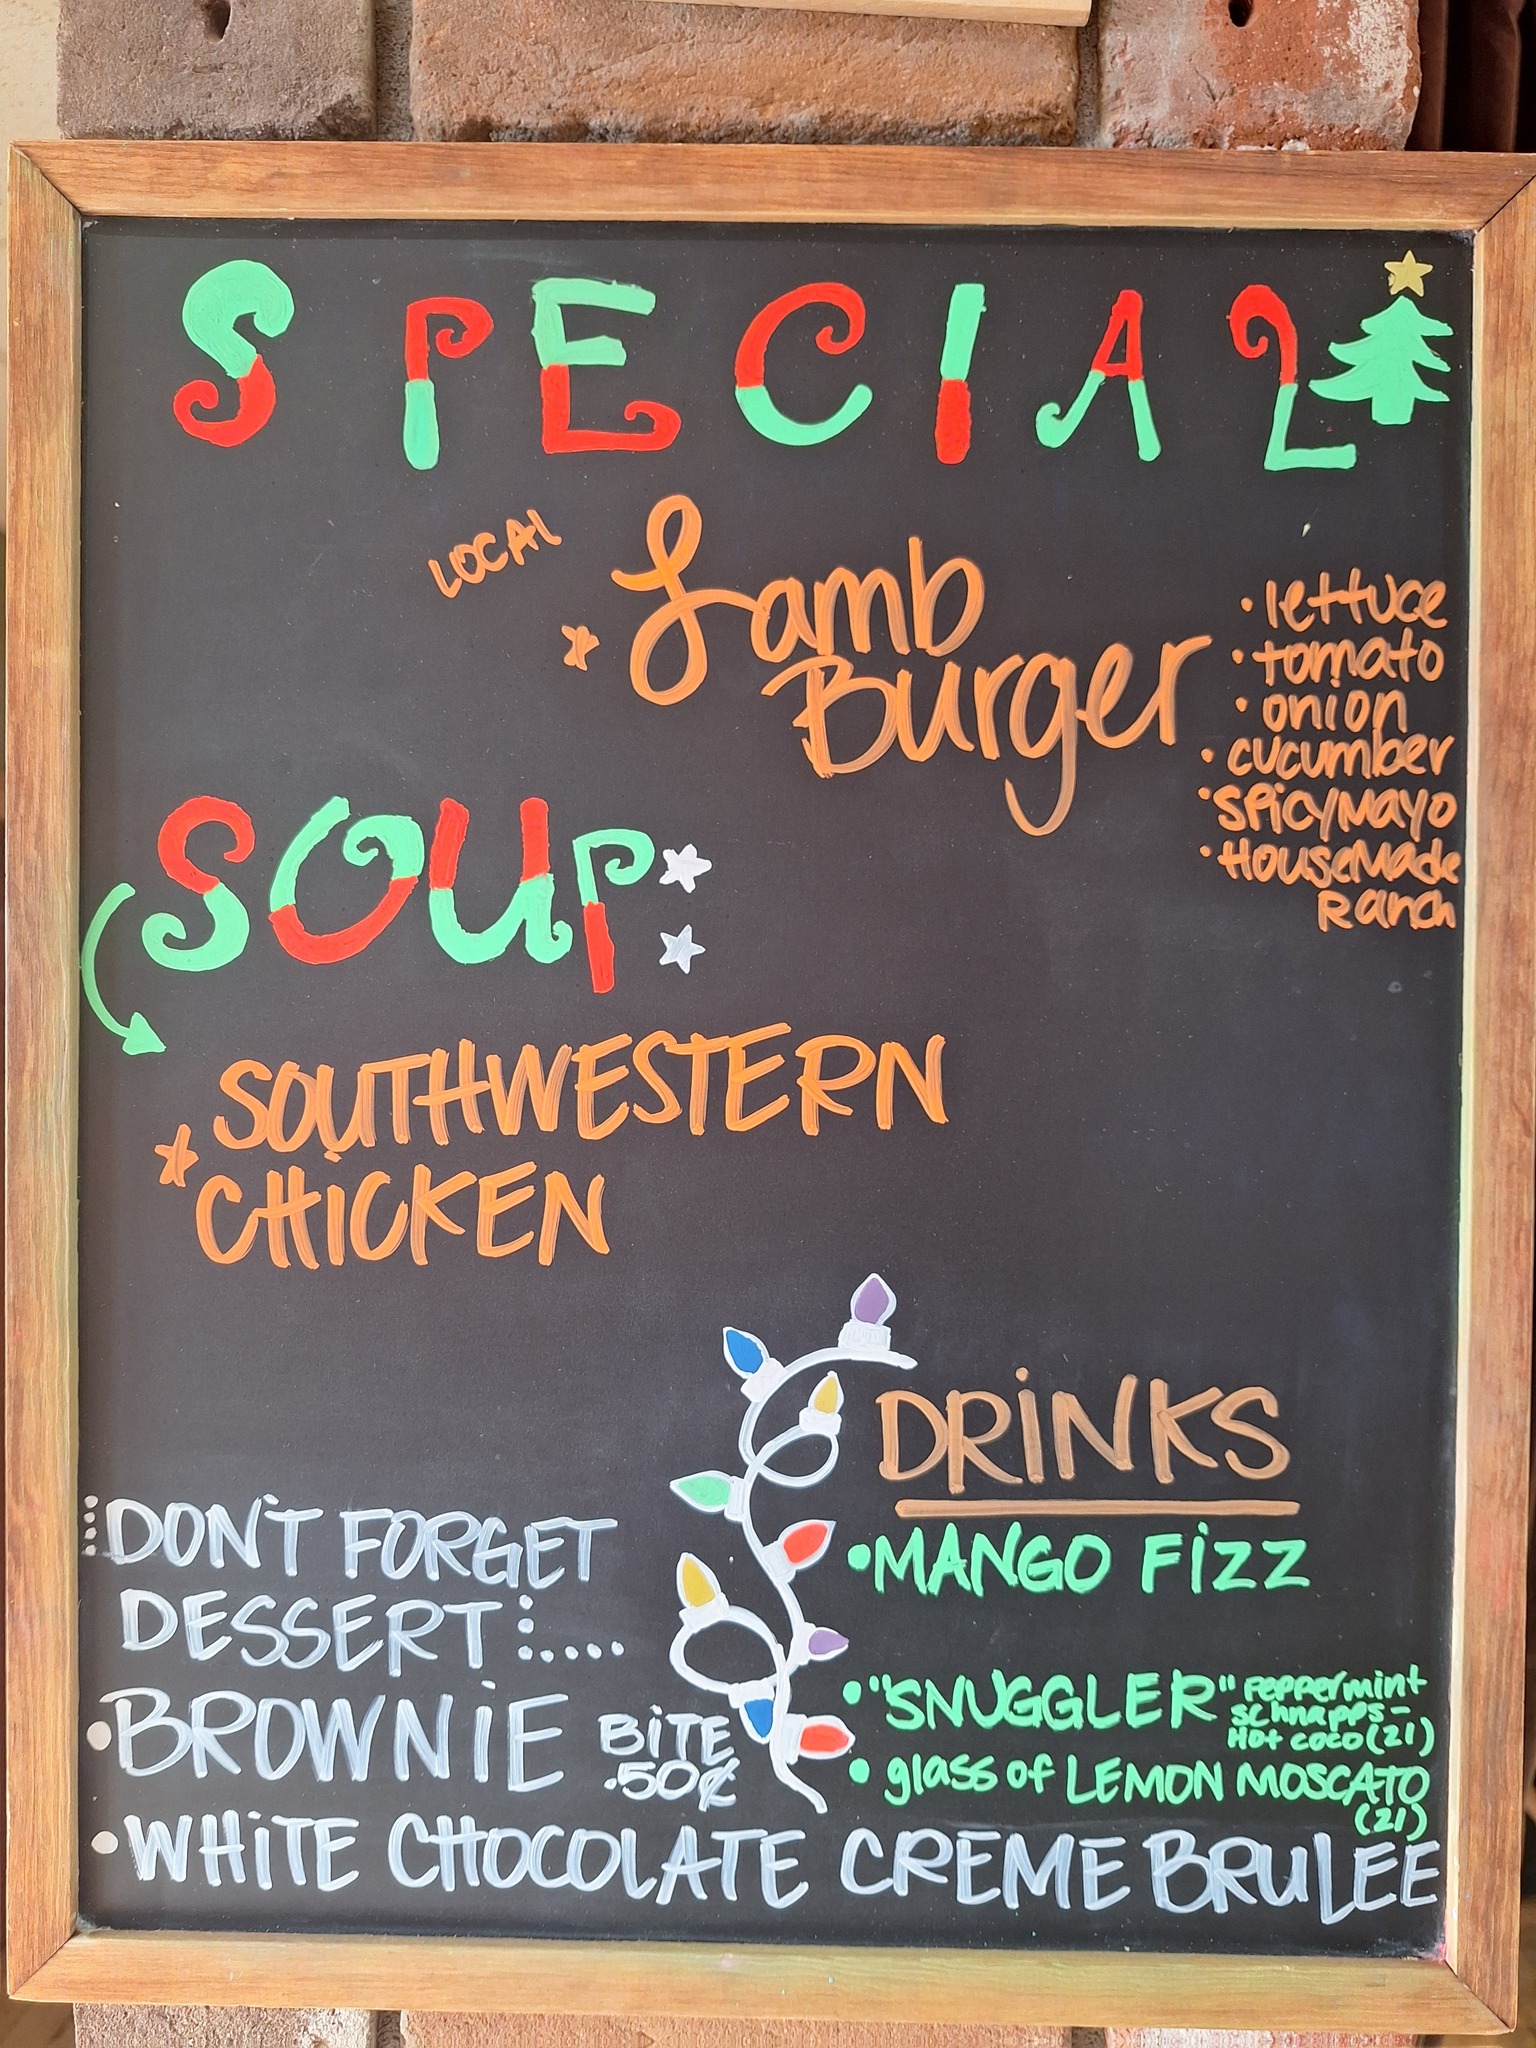 SPECIAL
LOCAL
Lamb
Burger
• lettuce
• tomato
• onion
• cucumber
• SPicy MAYO
• HouseMade
Ranch
SOUP
SOUTHWESTERN
CHiCKEN
DRiNKS
• MANGO FiZZ
• "SNUGGLER" Peppermint
schnapps-
Hot coco (21)
• glass of LEMON MOSCATO
(21)
DON'T FORGET
DESSERT:....
• BROWNiE BiTE
.50¢
• WHiTE CHOCOLATE CREME BRULEE